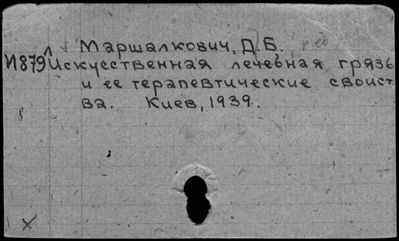 Маршалкович, Д.Б.
И879 Искусственная лечебная грязь
и ее терапевтические свойст
ва. Киев, 1939.